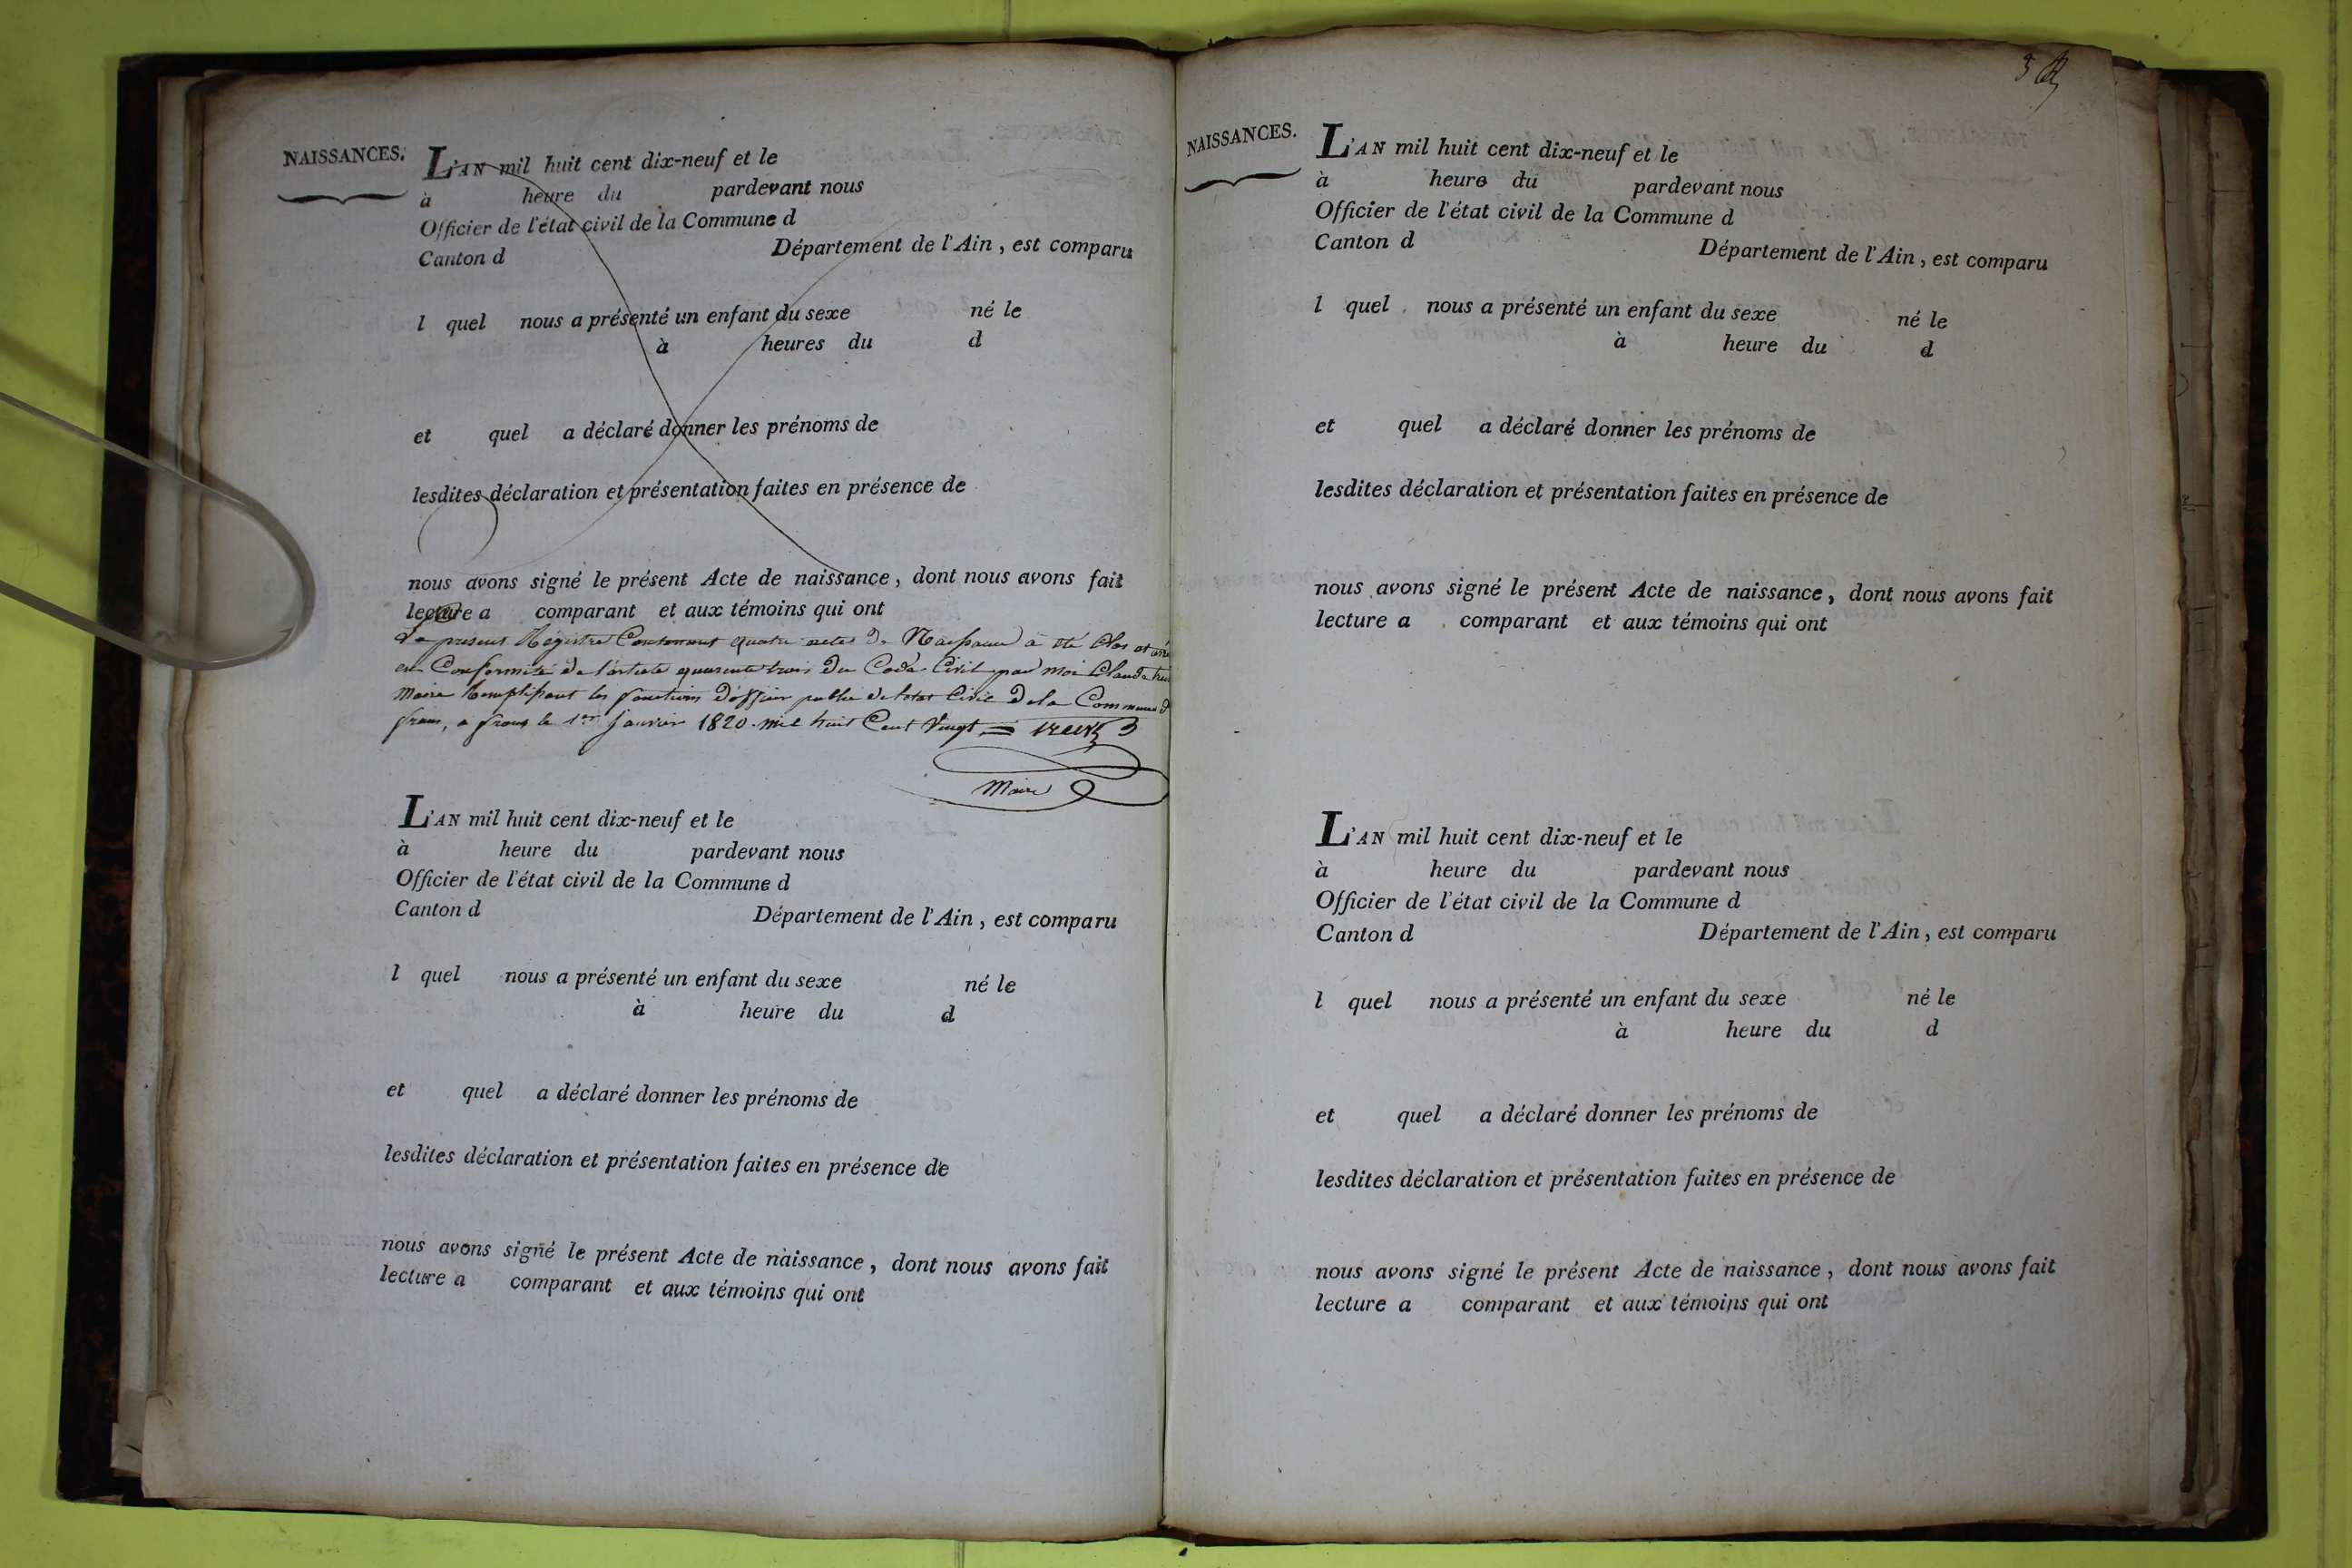 NAISSANCES.
L'AN mil huit cent dix-neuf et le
à heure du pardevant nous
Officier de l'état civil de la Commune d
Canton d Département de l'Ain, est comparu
l quel nous a présenté un enfant du sexe né le
à heures du d
et quel a déclaré donner les prénoms de
lesdites déclaration et présentation faites en présence de
nous avons signé le présent Acte de naissance, dont nous avons fait
lecture a comparant et aux témoins qui ont
Le present Régistre Contenant quatre actes de Naissance à été Clos et
en Conformité de l'article quarente trois du Code Civil par moi Claude
Maire Remplissant les fonctions d'officier public de l'état Civil de la Commune d
frans, a frans le 1er Janvier 1820. mil huit Cent Vingt
Maire
L'AN mil huit cent dix-neuf et le
à heure du pardevant nous
Officier de l'état civil de la Commune d
Canton d Département de l'Ain, est comparu
l quel nous a présenté un enfant du sexe né le
à heure du d
et quel a déclaré donner les prénoms de
lesdites déclaration et présentation faites en présence de
nous avons signé le présent Acte de naissance, dont nous avons fait
lecture a comparant et aux témoins qui ont
3
NAISSANCES.
L'AN mil huit cent dix-neuf et le
à heure du pardevant nous
Officier de l'état civil de la Commune d
Canton d Département de l'Ain, est comparu
l quel nous a présenté un enfant du sexe né le
à heure du d
et quel a déclaré donner les prénoms de
lesdites déclaration et présentation faites en présence de
nous avons signé le présent Acte de naissance, dont nous avons fait
lecture a comparant et aux témoins qui ont
L'AN mil huit cent dix-neuf et le
à heure du pardevant nous
Officier de l'état civil de la Commune d
Canton d Département de l'Ain, est comparu
l quel nous a présenté un enfant du sexe né le
à heure du d
et quel a déclaré donner les prénoms de
lesdites déclaration et présentation faites en présence de
nous avons signé le présent Acte de naissance, dont nous avons fait
lecture a comparant et aux témoins qui ont